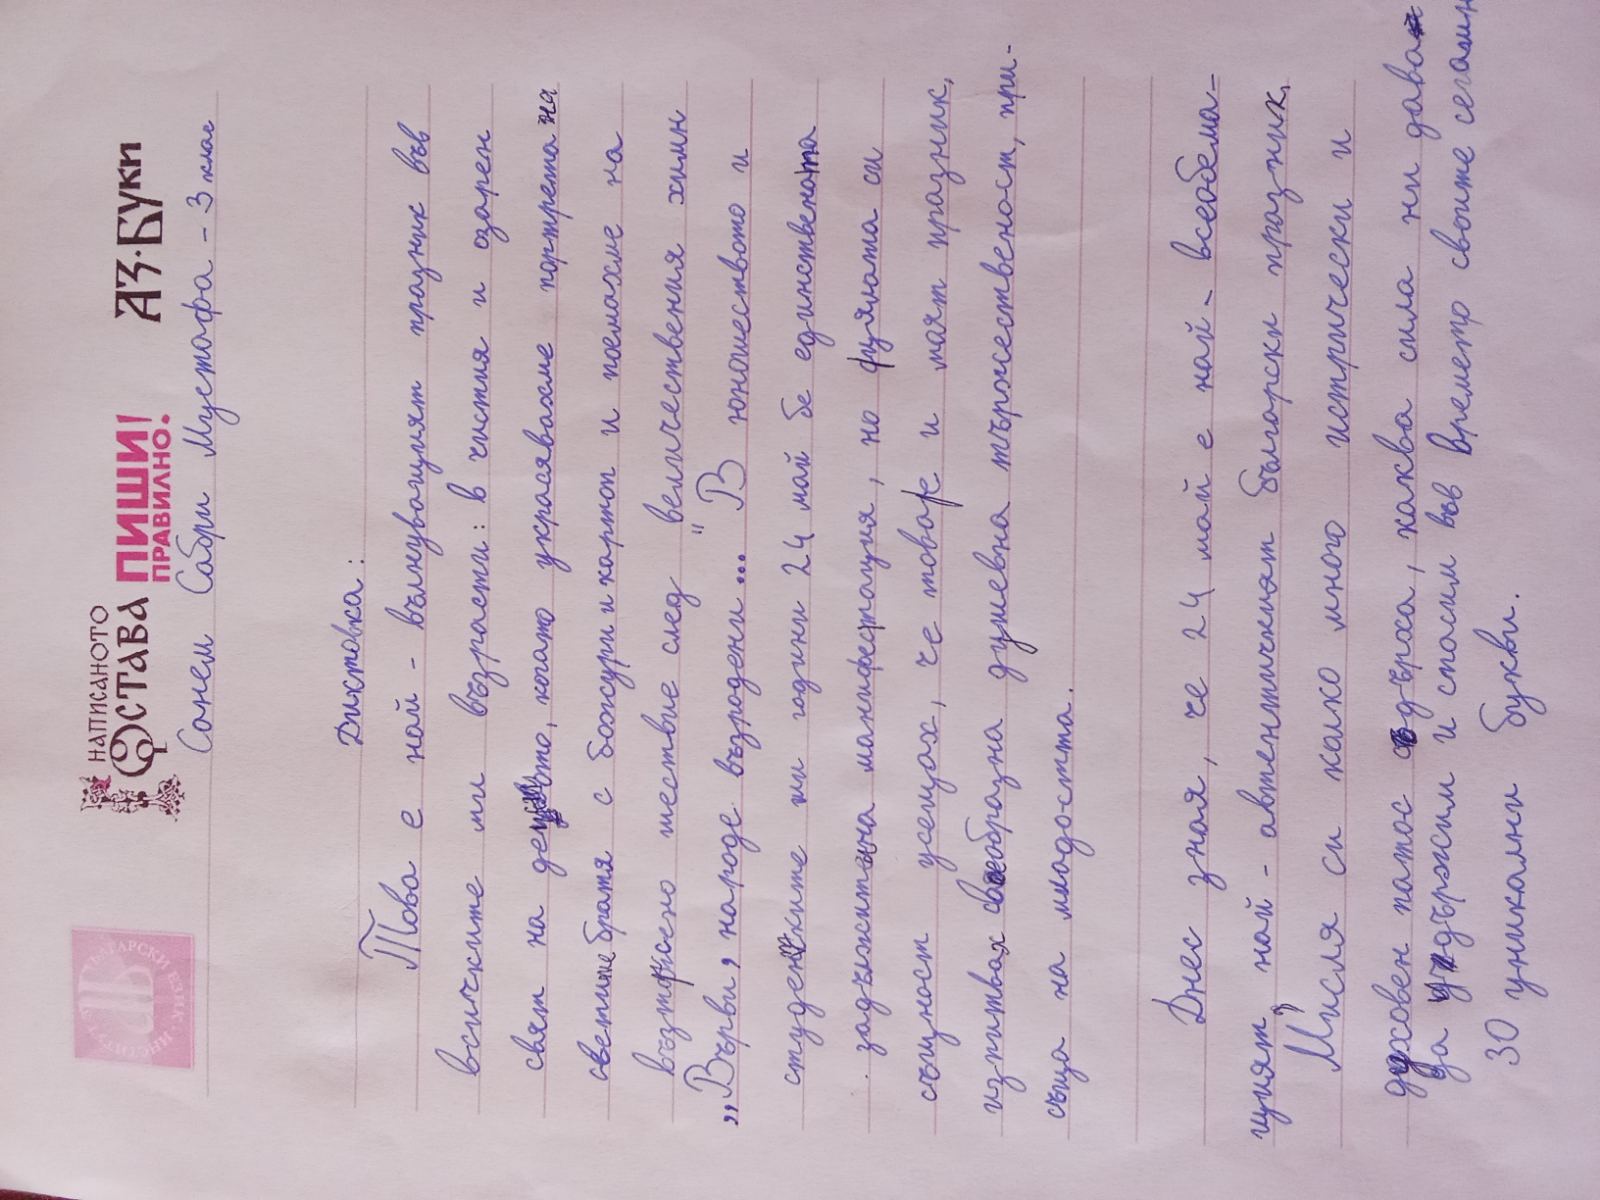 НАПИСАНОТО ОСТАВА ПИШИ ПРАВИЛНО! АЗ·БУКИ
Сонем Сабри Мустафа - 3 клас
Диктовка:
Това е най - вълнуващият празник във
всичките ми възрасти: в чистия и озарен
свят на детството, когато украсявахме портрета на
светите братя с божури и картон и поемахме на
възторжено шествие след величествения химн
„Върви, народе възродени..." В юношеството и
студентките ми години 24 май бе единствената
задължителна манифестация, но цялата си
същност усещах, че товаре и моят празник,
изпитвах своеобразна душевна тържественост, при-
съща на младостта.
Днес зная, че 24 май е най - всеобема-
щият, най - автентичният български празник.
Мисля си какво много истрически и
духовен патос съдържа, каква сила ни дава
да удържим и спасим във времето своите сегашни
30 уникални букви.